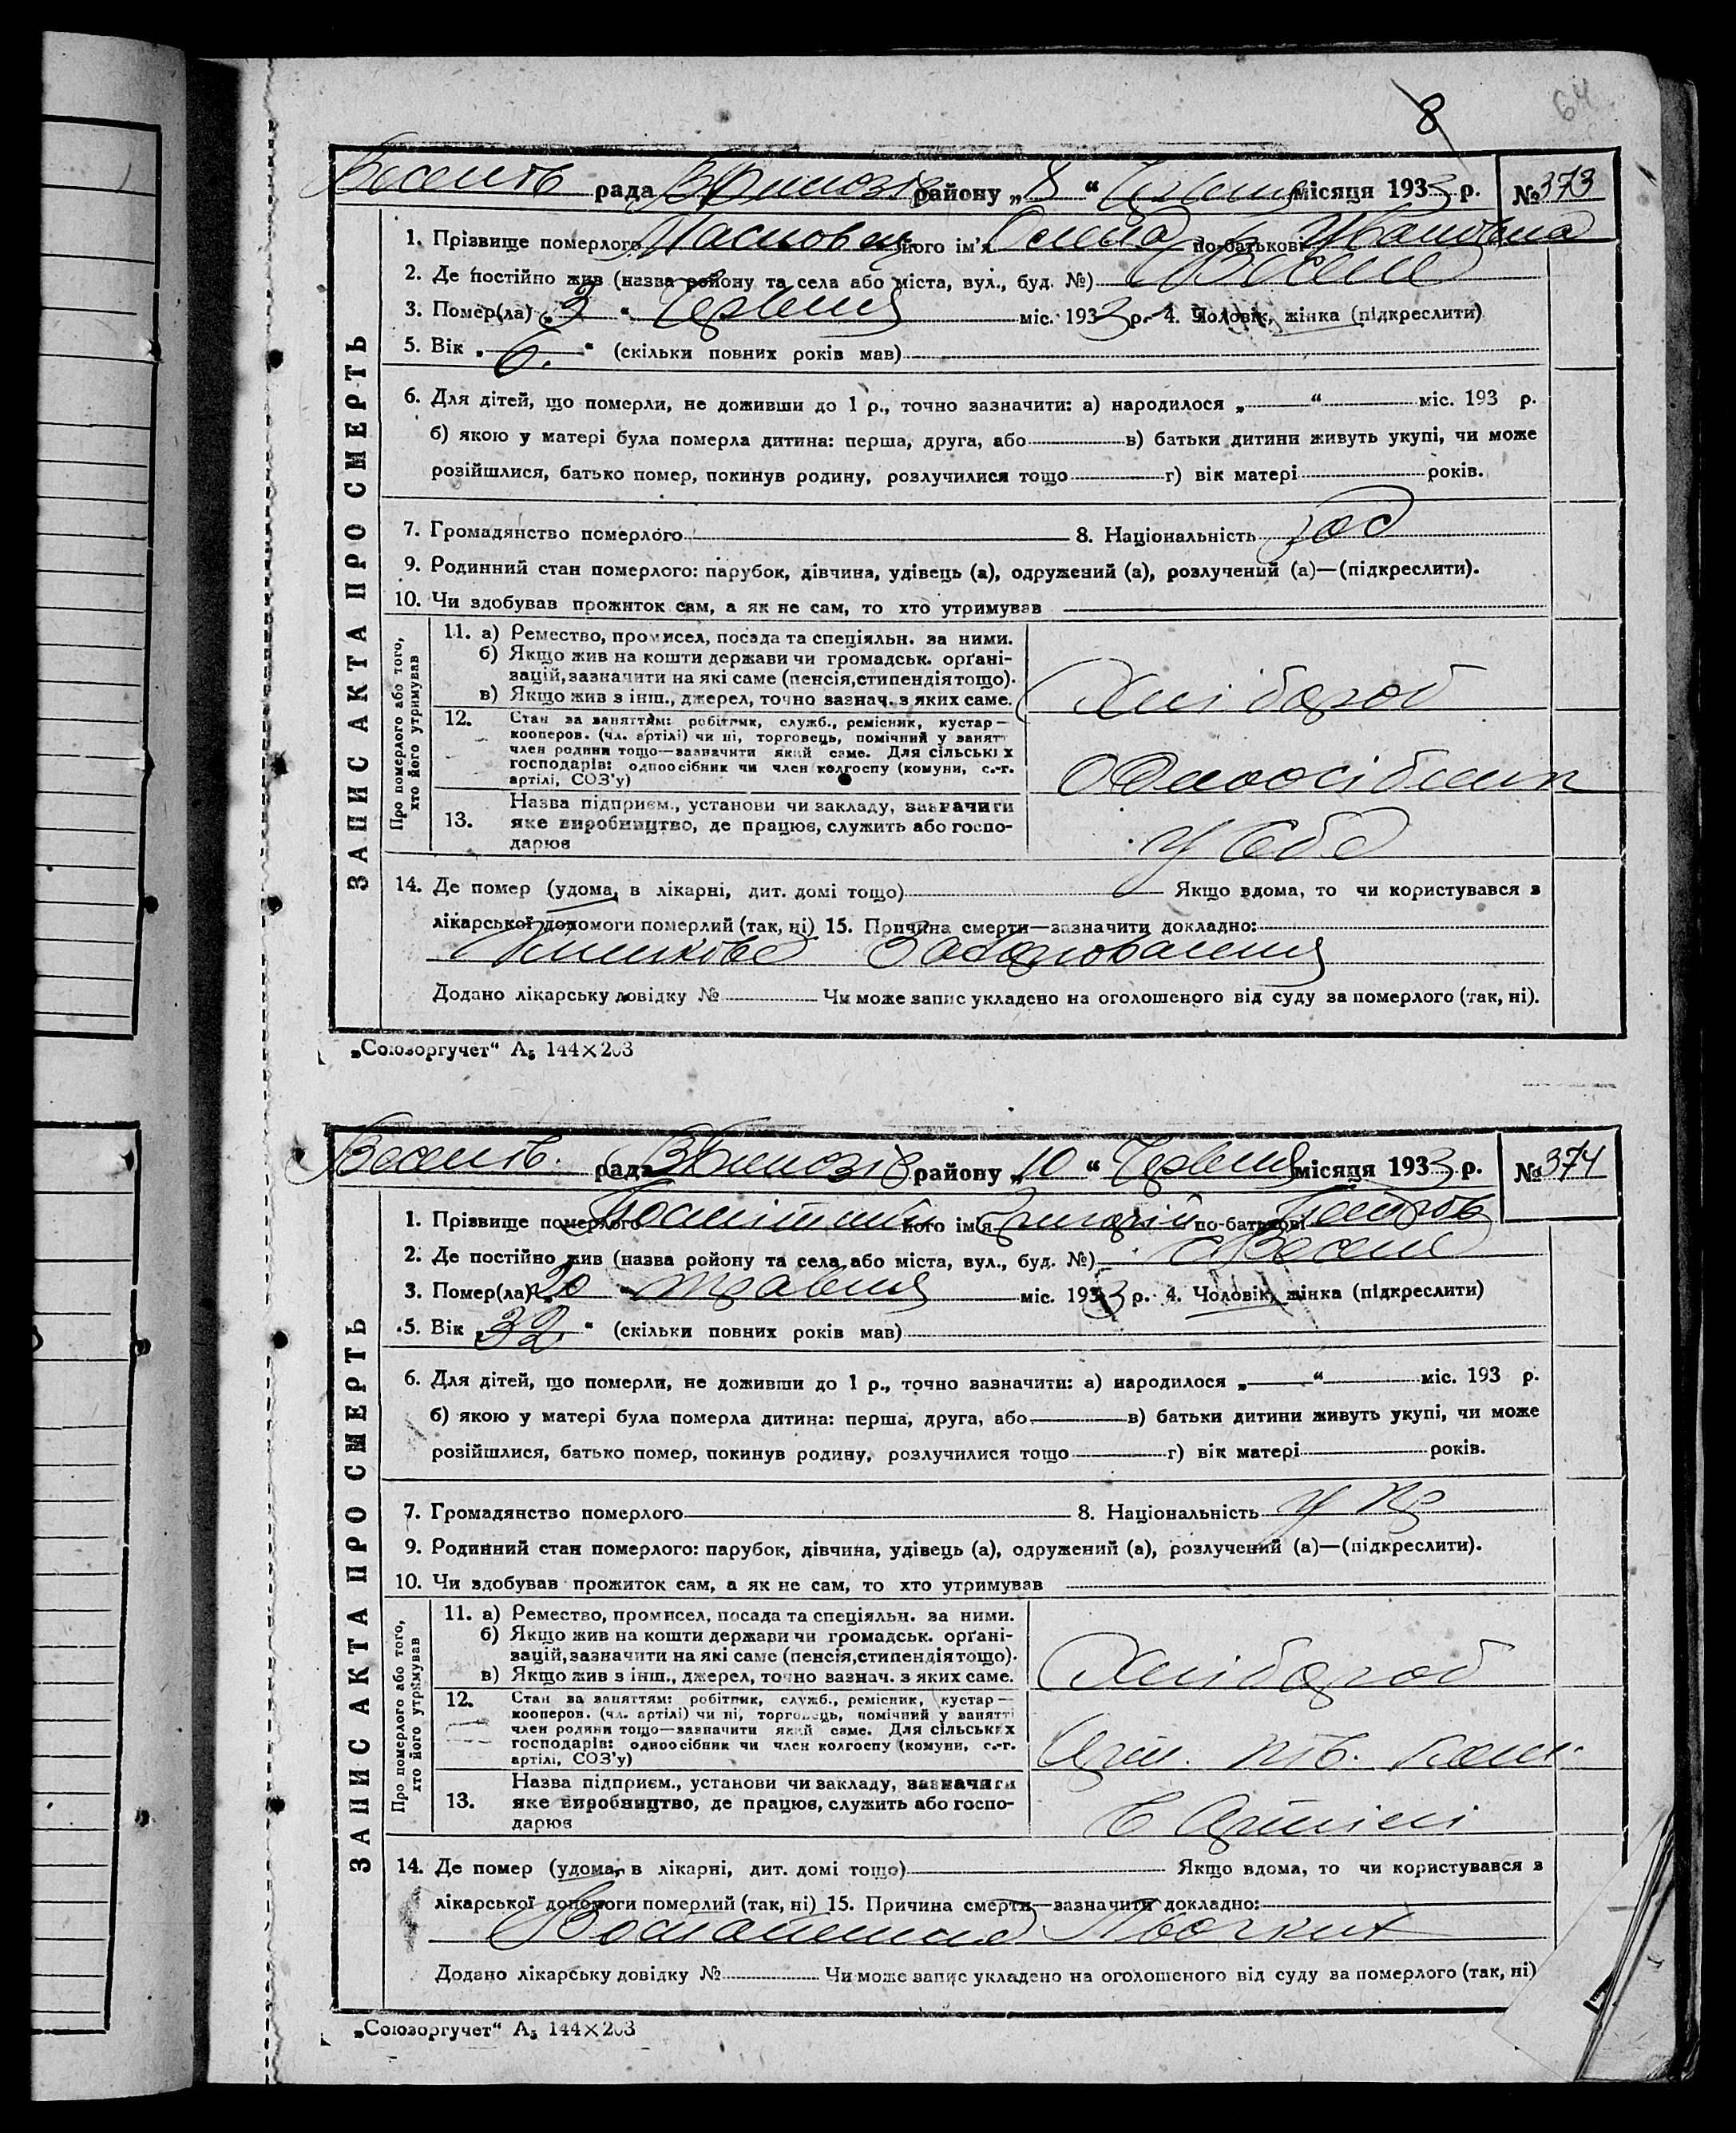 8
64
рада району „8“ Червня місяця 1933 р. № 373
1. Прізвище померлого його ім'я по-батькові Ивановна
2. Де постійно жив (назва району та села або міста, вул., буд. №) с. Веселе
3. Помер(ла) „3“ Червня міс. 1933 р. 4. Чоловік, жінка (підкреслити)
5. Вік „6.“ (скільки повних років мав)
6. Для дітей, що померли, не доживши до 1 р., точно зазначити: а) народилося „ “ міс. 193 р.
б) якою у матері була померла дитина: перша, друга, або в) батьки дитини живуть укупі, чи може
розійшлися, батько помер, покинув родину, розлучилися тощо г) вік матері років.
7. Громадянство померлого 8. Національність
9. Родинний стан померлого: парубок, дівчина, удівець (а), одружений (а), розлучений (а)—(підкреслити).
10. Чи здобував прожиток сам, а як не сам, то хто утримував
ЗАПИС АКТА ПРО СМЕРТЬ
Про померлого або того,
хто його утримував
11. а) Ремество, промисел, посада та спеціяльн. за ними.
б) Якщо жив на кошти держави чи громадськ. орґані-
зацій, зазначити на які саме (пенсія, стипендія тощо).
в) Якщо жив з інш., джерел, точно зазнач. з яких саме.
Хлібороб
12. Стан за заняттям: робітник, служб., ремісник, кустар—
кооперов. (чл. артілі) чи ні, торговець, помічний у занятт
член родини тощо—зазначити який саме. Для сільських
господарів: одноосібник чи член колгоспу (комуни, с.-г.
артілі, СОЗ'у)
Одноосібник
13. Назва підприєм., установи чи закладу, зазначити
яке виробництво, де працює, служить або госпо-
дарює
У себе
14. Де помер (удома, в лікарні, дит. домі тощо) Якщо вдома, то чи користувався з
лікарської допомоги померлий (так, ні) 15. Причина смерти—зазначити докладно:
Додано лікарську довідку № Чи може запис укладено на оголошеного від суду за померлого (так, ні).
„Союзоргучет“ А5 144×203
рада району „10“ Червня місяця 1933 р. № 374
1. Прізвище померлого його ім'я Григорій по-батькові
2. Де постійно жив (назва району та села або міста, вул., буд. №) с. Веселе
3. Помер(ла) „20“ травня міс. 1933 р. 4. Чоловік, жінка (підкреслити)
5. Вік „32.“ (скільки повних років мав)
6. Для дітей, що померли, не доживши до 1 р., точно зазначити: а) народилося „ “ міс. 193 р.
б) якою у матері була померла дитина: перша, друга, або в) батьки дитини живуть укупі, чи може
розійшлися, батько помер, покинув родину, розлучилися тощо г) вік матері років.
7. Громадянство померлого 8. Національність Укр
9. Родинний стан померлого: парубок, дівчина, удівець (а), одружений (а), розлучений (а)—(підкреслити).
10. Чи здобував прожиток сам, а як не сам, то хто утримував
ЗАПИС АКТА ПРО СМЕРТЬ
Про померлого або того,
хто його утримував
11. а) Ремество, промисел, посада та спеціяльн. за ними.
б) Якщо жив на кошти держави чи громадськ. орґані-
зацій, зазначити на які саме (пенсія, стипендія тощо).
в) Якщо жив з інш., джерел, точно зазнач. з яких саме.
Хлібороб
12. Стан за заняттям: робітник, служб., ремісник, кустар—
кооперов. (чл. артілі) чи ні, торговець, помічний у занятті
член родини тощо—зазначити який саме. Для сільських
господарів: одноосібник чи член колгоспу (комуни, с.-г.
артілі, СОЗ'у)
13. Назва підприєм., установи чи закладу, зазначити
яке виробництво, де працює, служить або госпо-
дарює
в Артілі
14. Де помер (удома, в лікарні, дит. домі тощо) Якщо вдома, то чи користувався з
лікарської допомоги померлий (так, ні) 15. Причина смерти—зазначити докладно:
Додано лікарську довідку № Чи може запис укладено на оголошеного від суду за померлого (так, ні)
„Союзоргучет“ А5 144×203